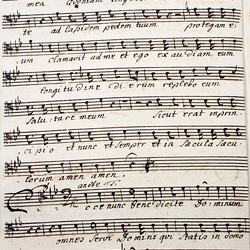 mea
te ad lapidem pedem tuum protegam e-
um clamavit ad me et ego exaudiam eum
longitudine dierum replebo eum
Salutare meum Sicut erat in prin-
cipio et nunc et semper et in saecula saecu-
lorum amen amen.
Ecce nunc benedicite Dominum
omnes servi Domini qui statis in domo